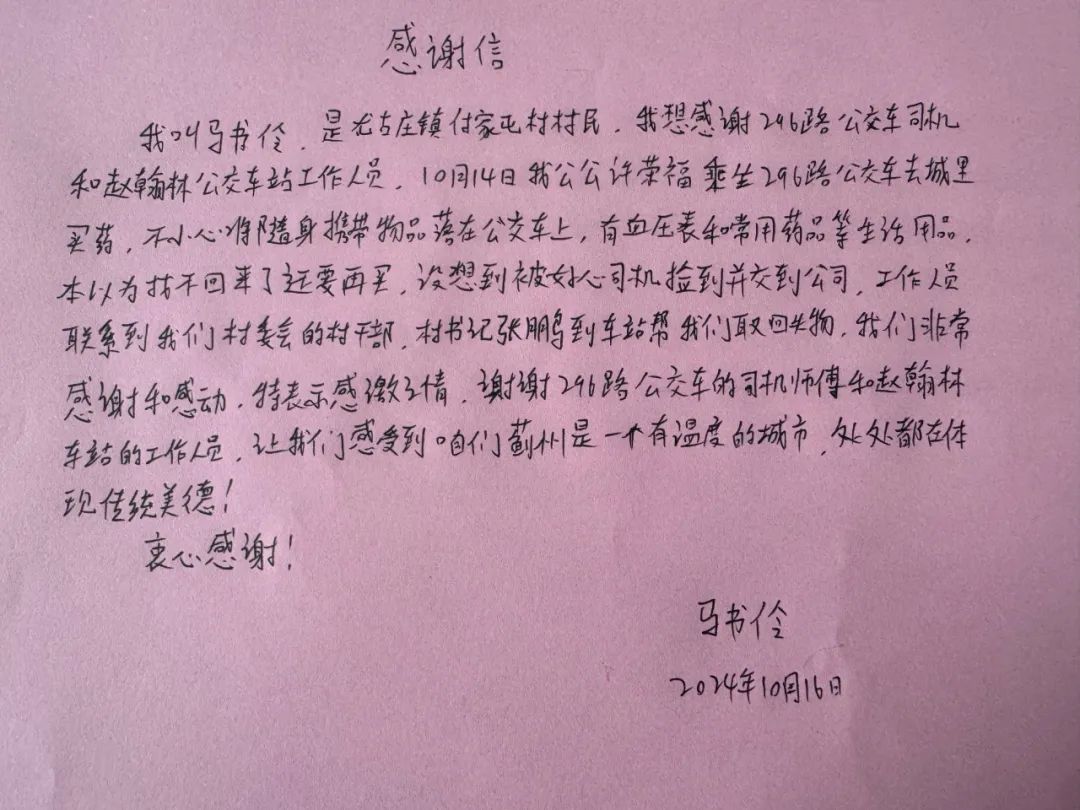 感谢信
我叫马书伶，是尤古庄镇付家屯村村民，我想感谢296路公交车司机
和赵翰林公交车站工作人员，10月14日我公公许荣福乘坐296路公交车去城里
买药，不小心将随身携带物品落在公交车上，有血压表和常用药品等生活用品，
本以为找不回来了还要再买，没想到被好心司机捡到并交到公司，工作人员
联系到我们村委会的村干部，村书记张鹏鸟到车站帮我们取回失物，我们非常
感谢和感动，特表示感激之情，谢谢296路公交车的司机师傅和赵翰林
车站的工作人员，让我们感受到咱们蓟州是一个有温度的城市，处处都在体
现传统美德！
衷心感谢！
马书伶
2024年10月16日